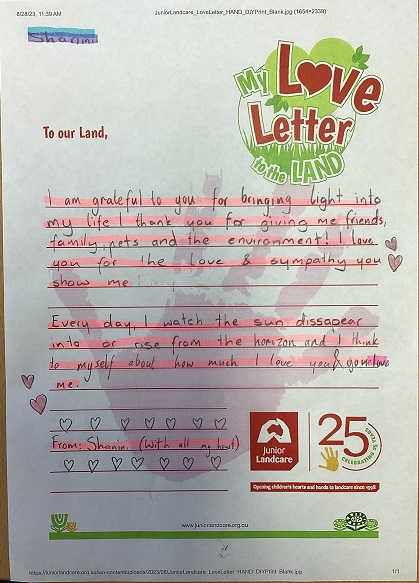 8/28/23, 11:39 AM
JuniorLandcare_LoveLetter_HAND_DIYPrint_Blank.jpg (1654×2339)
My Love
Letter
to the LAND
To our Land,
I am grateful to you for bringing light into
my life I thank you for giving me friends,
family, pets and the environment! I love
you for the love & sympathy you
show me.
Every day, I watch the sun dissapear
into or rise from the horizon and I think
to myself about how much I love you & you love
me.
From: (With all my heart)
Junior
Landcare
25
YEARS
CELEBRATING
Opening children's hearts and hands to landcare since 1998
www.juniorlandcare.org.au
https://juniorlandcare.org.au/wp-content/uploads/2023/08/JuniorLandcare_LoveLetter_HAND_DIYPrint_Blank.jpg
1/1